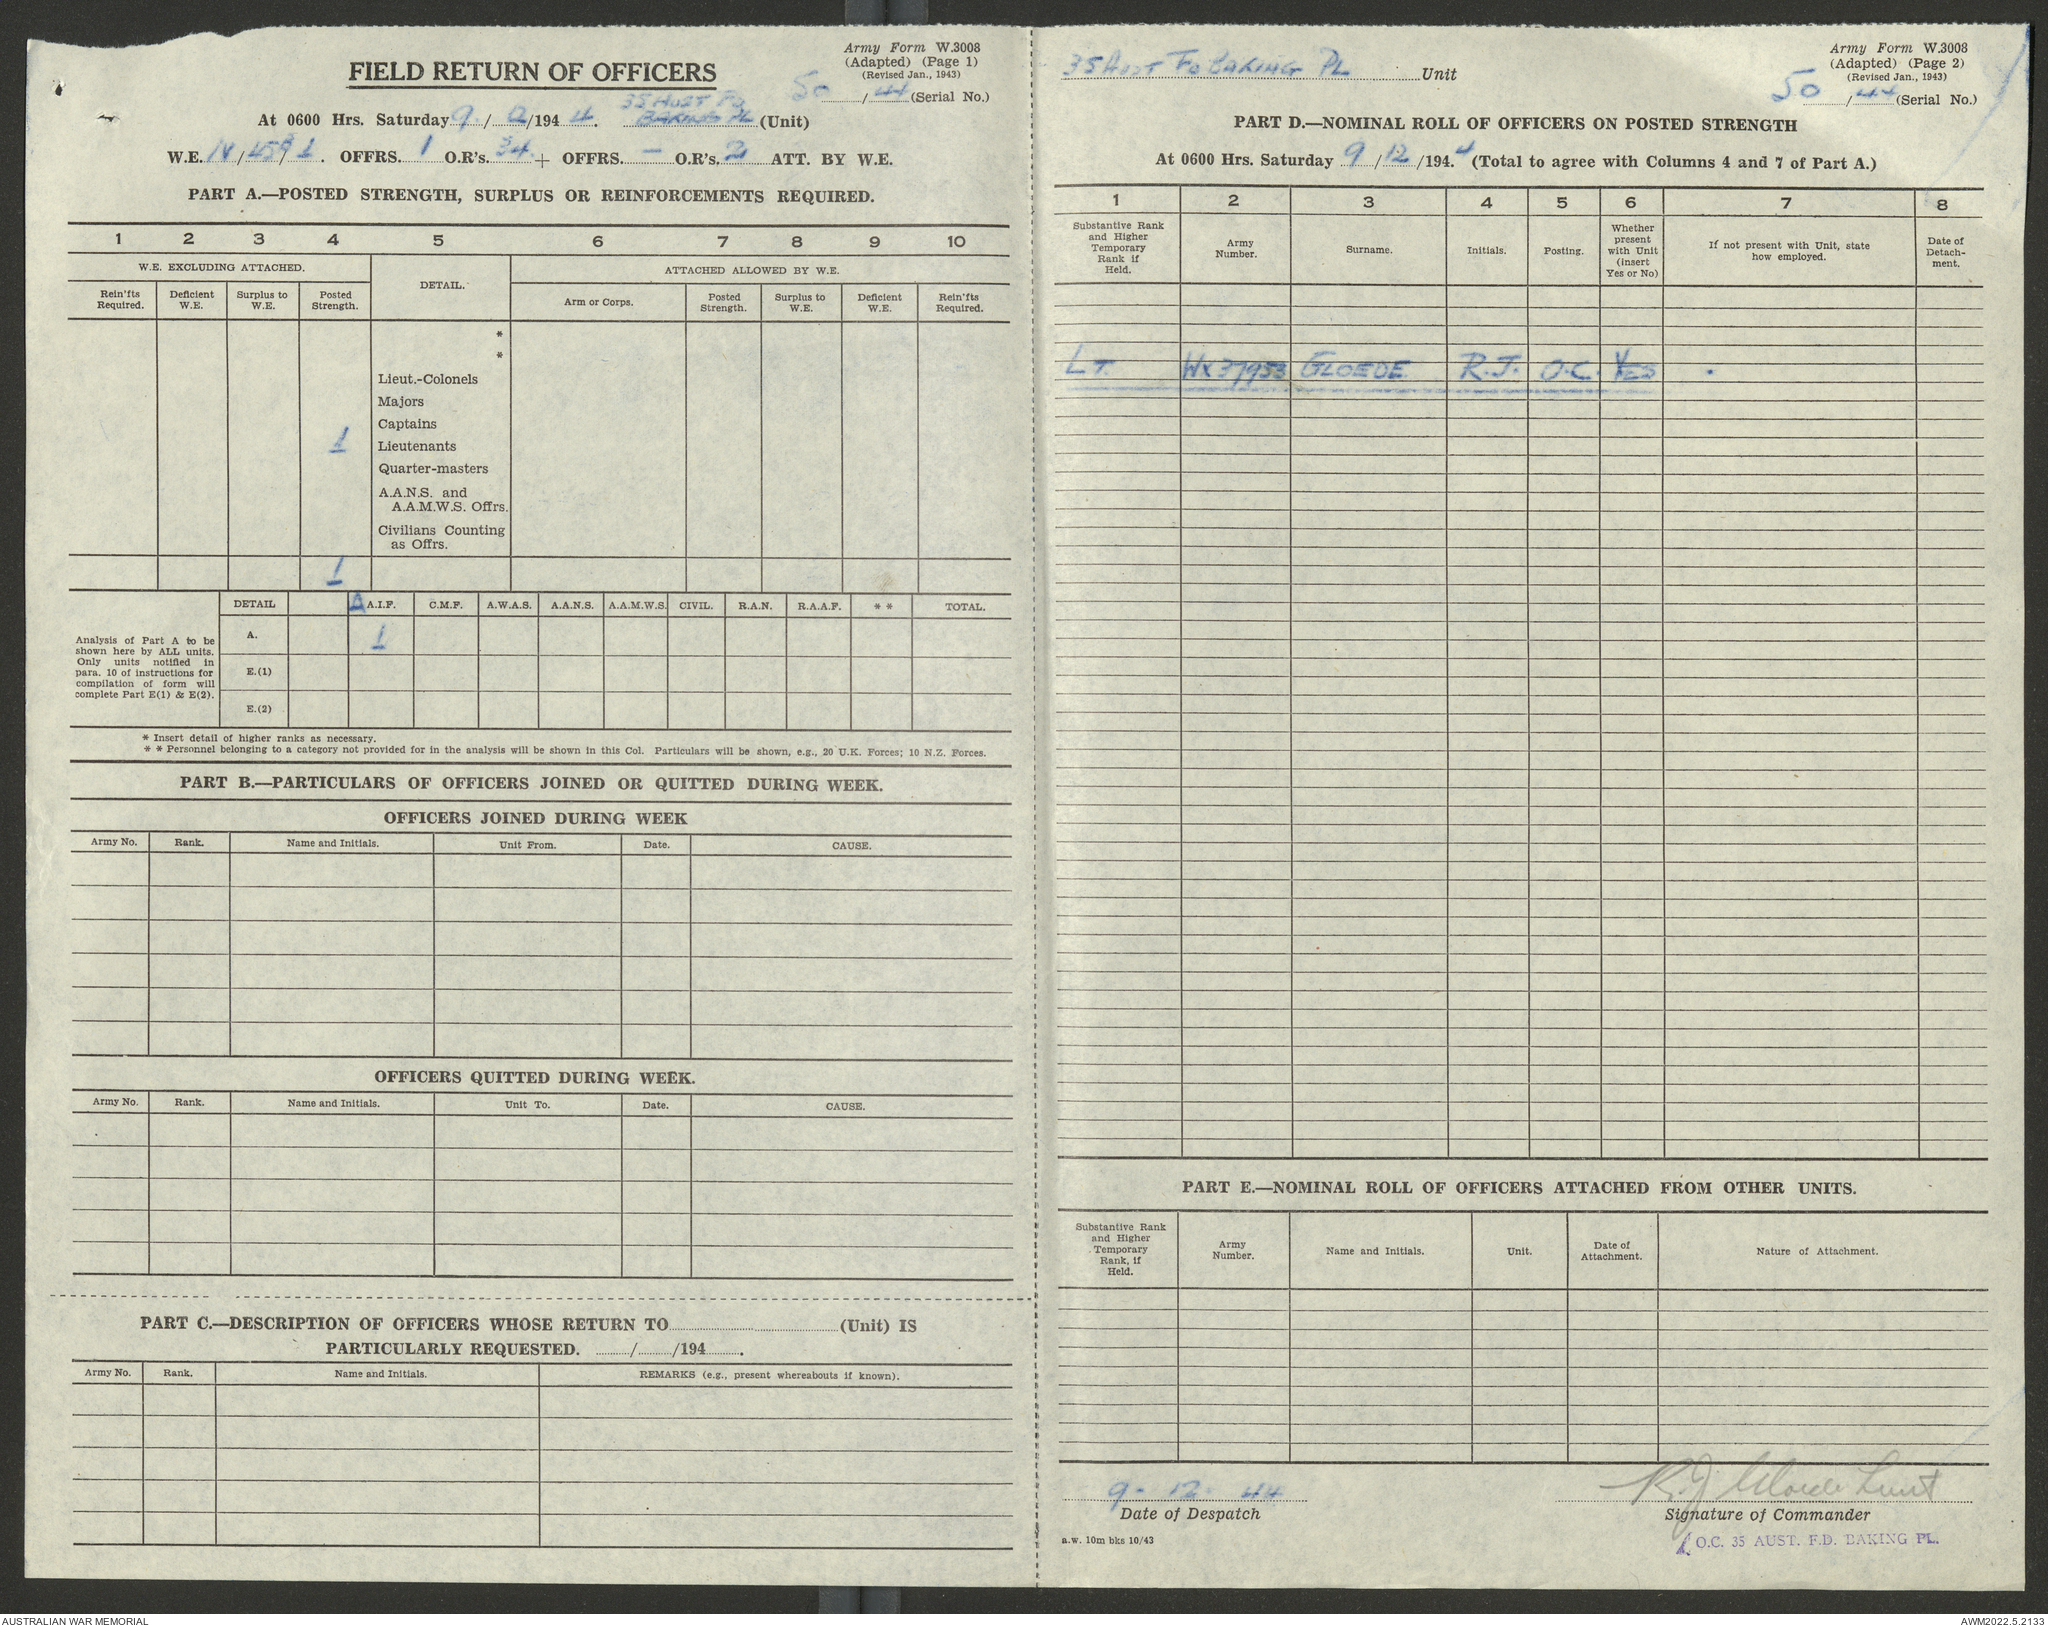 Army Form W.3008
(Adapted) (Page 1)
(Revised Jan., 1943)
FIELD RETURN OF OFFICERS
50/44 (Serial No.)
At 0600 Hrs. Saturday 9/12/1944. 35 AUST FD BAKING PL (Unit)
W.E. IV/459/1. OFFRS. 1 O.R's. 34 + OFFRS. – O.R's. 2 ATT. BY W.E.
PART A.—POSTED STRENGTH, SURPLUS OR REINFORCEMENTS REQUIRED.
1 2 3 4 5 6 7 8 9 10
W.E. EXCLUDING ATTACHED. DETAIL. ATTACHED ALLOWED BY W.E.
Rein'fts Required. Deficient W.E. Surplus to W.E. Posted Strength. Arm or Corps. Posted Strength. Surplus to W.E. Deficient W.E. Rein'fts Required.
*
*
Lieut.-Colonels
Majors
Captains
1 Lieutenants
Quarter-masters
A.A.N.S. and
A.A.M.W.S. Offrs.
Civilians Counting
as Offrs.
1
DETAIL A.I.F. C.M.F. A.W.A.S. A.A.N.S. A.A.M.W.S. CIVIL. R.A.N. R.A.A.F. * * TOTAL.
Analysis of Part A to be
shown here by ALL units.
Only units notified in
para. 10 of instructions for
compilation of form will
complete Part E(1) & E(2).
A. 1
E.(1)
E.(2)
* Insert detail of higher ranks as necessary.
* * Personnel belonging to a category not provided for in the analysis will be shown in this Col. Particulars will be shown, e.g., 20 U.K. Forces; 10 N.Z. Forces.
PART B.—PARTICULARS OF OFFICERS JOINED OR QUITTED DURING WEEK.
OFFICERS JOINED DURING WEEK
Army No. Rank. Name and Initials. Unit From. Date. CAUSE.
OFFICERS QUITTED DURING WEEK.
Army No. Rank. Name and Initials. Unit To. Date. CAUSE.
PART C.—DESCRIPTION OF OFFICERS WHOSE RETURN TO (Unit) IS
PARTICULARLY REQUESTED. / /194 .
Army No. Rank. Name and Initials. REMARKS (e.g., present whereabouts if known).
35 AUST FD BAKING PL Unit
Army Form W.3008
(Adapted) (Page 2)
(Revised Jan., 1943)
50/44 (Serial No.)
PART D.—NOMINAL ROLL OF OFFICERS ON POSTED STRENGTH
At 0600 Hrs. Saturday 9/12/194.4 (Total to agree with Columns 4 and 7 of Part A.)
1 2 3 4 5 6 7 8
Substantive Rank and Higher Temporary Rank if Held. Army Number. Surname. Initials. Posting. Whether present with Unit (insert Yes or No) If not present with Unit, state how employed. Date of Detach-ment.
LT. WX37953 GLOEDE R.J. O.C. YES
PART E.—NOMINAL ROLL OF OFFICERS ATTACHED FROM OTHER UNITS.
Substantive Rank and Higher Temporary Rank, if Held. Army Number. Name and Initials. Unit. Date of Attachment. Nature of Attachment.
9. 12. 44
Date of Despatch
R.J. Gloede Lieut
Signature of Commander
a.w. 10m bks 10/43
O.C. 35 AUST. F.D. BAKING PL.
AUSTRALIAN WAR MEMORIAL
AWM2022.5.2133